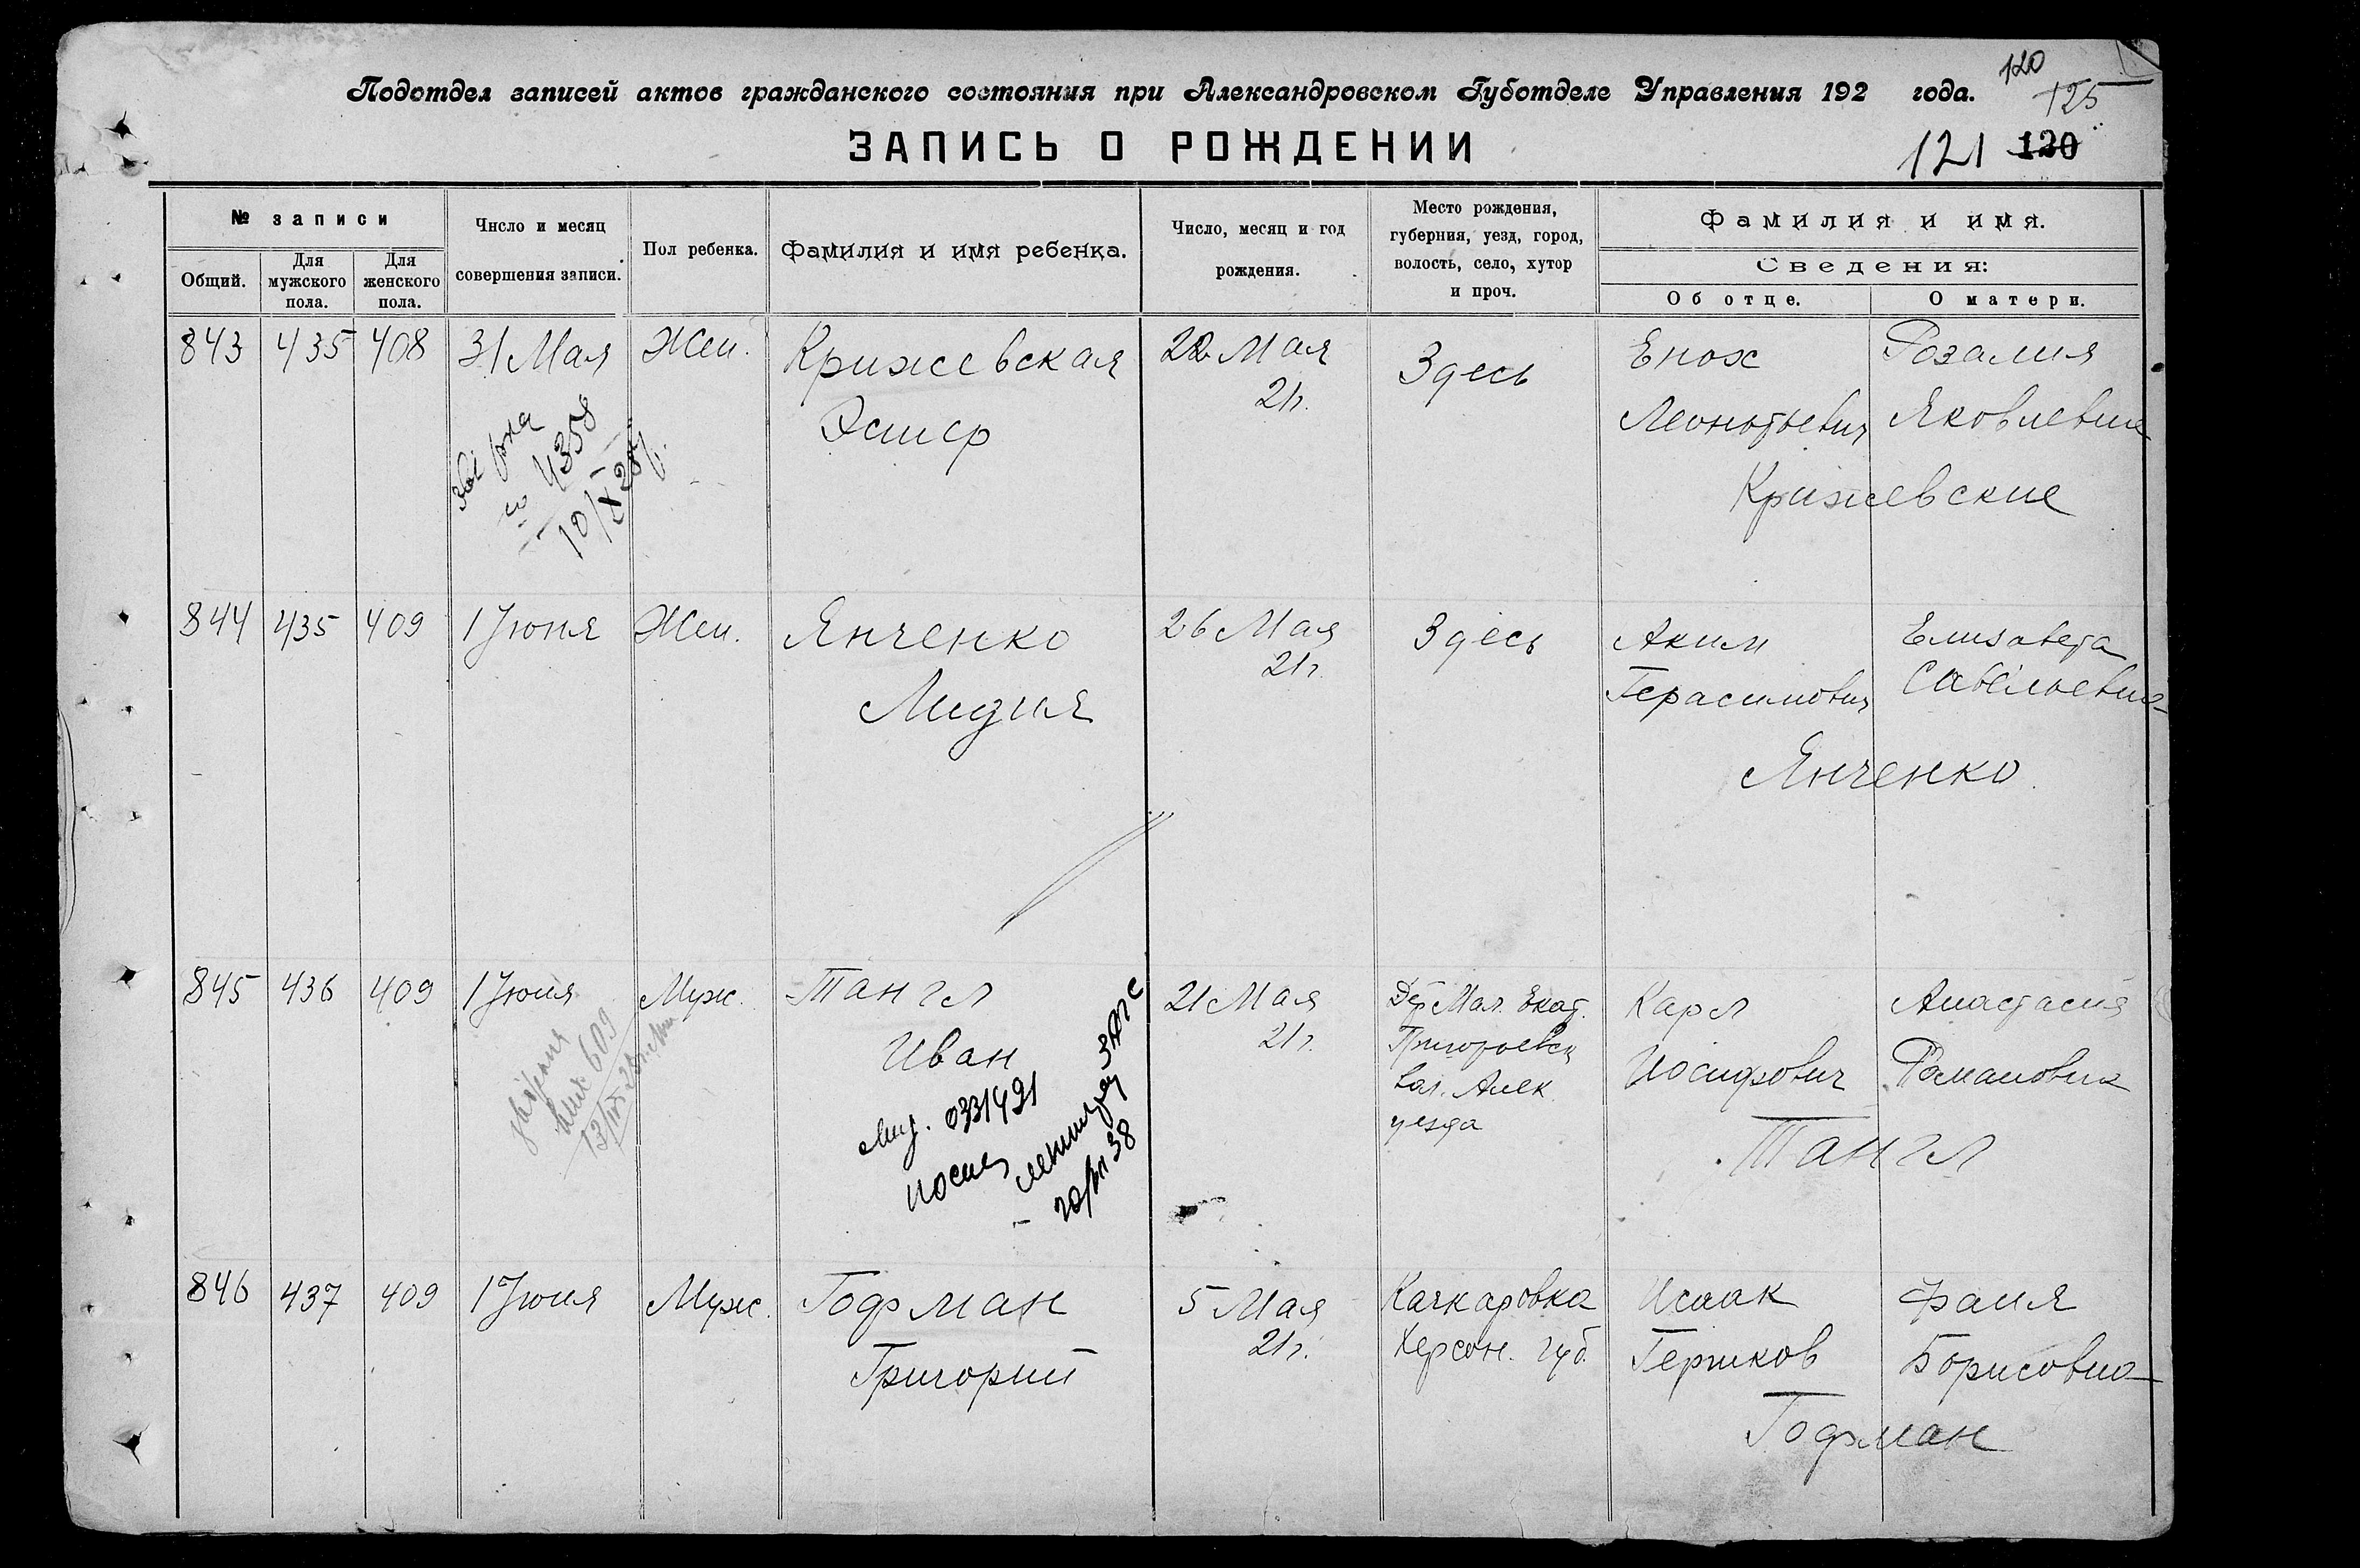 Подотдел записей актов гражданского состояния при Александровском Губотделе Управления 192 года.
120
125
ЗАПИСЬ О РОЖДЕНИИ
121 120
№ записи
Общий.
Для мужского пола.
Для женского пола.
Число и месяц совершения записи.
Пол ребенка.
Фамилия и имя ребенка.
Число, месяц и год рождения.
Место рождения, губерния, уезд, город, волость, село, хутор и проч.
Фамилия и имя.
Сведения:
Об отце.
О матери.
843 435 408 31 Мая Жен. Крижевская 22 Мая Здесь Енох Розалия
Эстер 21г. Леонтьевич Яковлевна
Крижевские
4358
10/X 28 г.
844 435 409 1 Июня Жен. Янченко 26 Мая Здесь Аким Елизавета
Лидия 21г. Герасимович Савельевна
Янченко
845 436 409 1 Июня Муж. Тангл 21 Мая Дер Мал. Екат. Карл Анастасия
Иван 21г. Григорьевск Иосифович Романовна
вол. Алек
уезда
Тангл
609
0331491
ЗАГС
38
846 437 409 1 Июня Муж. Гофман 5 Мая Качкаровка Исаак Фаня
Григорий 21г. Херсон. губ. Гершков Борисовна
Гофман